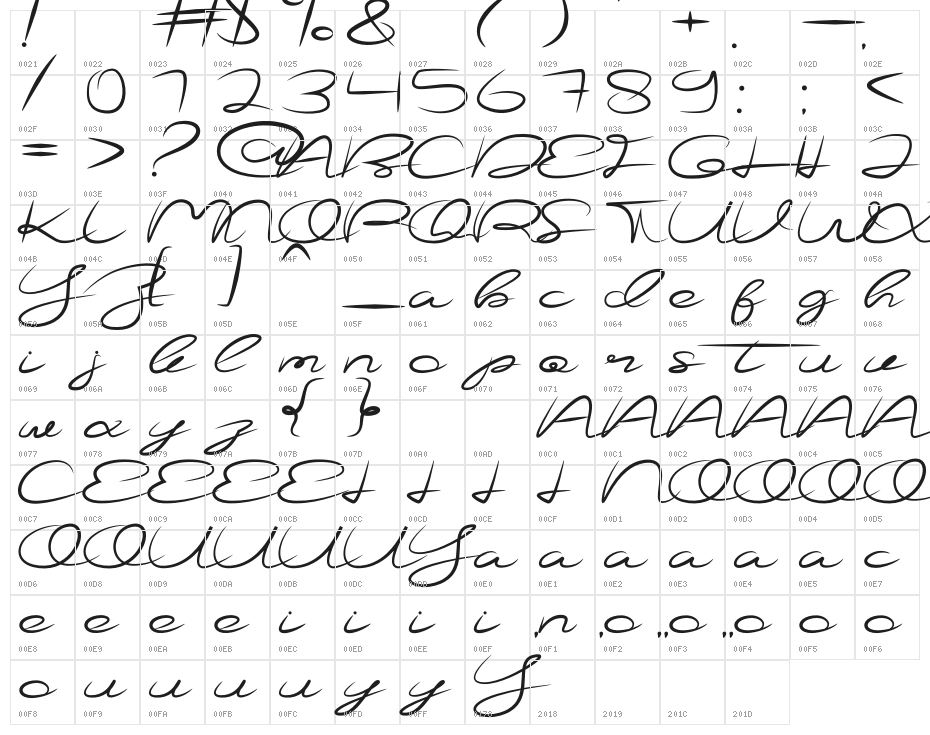 ! # $ % & ( ) + . - ,
0021 0022 0023 0024 0025 0026 0027 0028 0029 002A 002B 002C 002D 002E
/ 0 1 2 3 4 5 6 7 8 9 : ; <
002F 0030 0031 0032 0033 0034 0035 0036 0037 0038 0039 003A 003B 003C
= > ? @ A B C D E F G H I J
003D 003E 003F 0040 0041 0042 0043 0044 0045 0046 0047 0048 0049 004A
K L M N O P Q R S T U V W X
004B 004C 004D 004E 004F 0050 0051 0052 0053 0054 0055 0056 0057 0058
Y Z [ ] ^ _ a b c d e f g h
0059 005A 005B 005D 005E 005F 0061 0062 0063 0064 0065 0066 0067 0068
i j k l m n o p q r s t u v
0069 006A 006B 006C 006D 006E 006F 0070 0071 0072 0073 0074 0075 0076
w x y z { } A A A A A A
0077 0078 0079 007A 007B 007D 00A0 00AD 00C0 00C1 00C2 00C3 00C4 00C5
C E E E E I I I I N O O O O
00C7 00C8 00C9 00CA 00CB 00CC 00CD 00CE 00CF 00D1 00D2 00D3 00D4 00D5
O O U U U U Y a a a a a a c
00D6 00D8 00D9 00DA 00DB 00DC 00DD 00E0 00E1 00E2 00E3 00E4 00E5 00E7
e e e e i i i i n o o o o o
00E8 00E9 00EA 00EB 00EC 00ED 00EE 00EF 00F1 00F2 00F3 00F4 00F5 00F6
o u u u u y y Y , , ,, ,,
00F8 00F9 00FA 00FB 00FC 00FD 00FF 0178 2018 2019 201C 201D